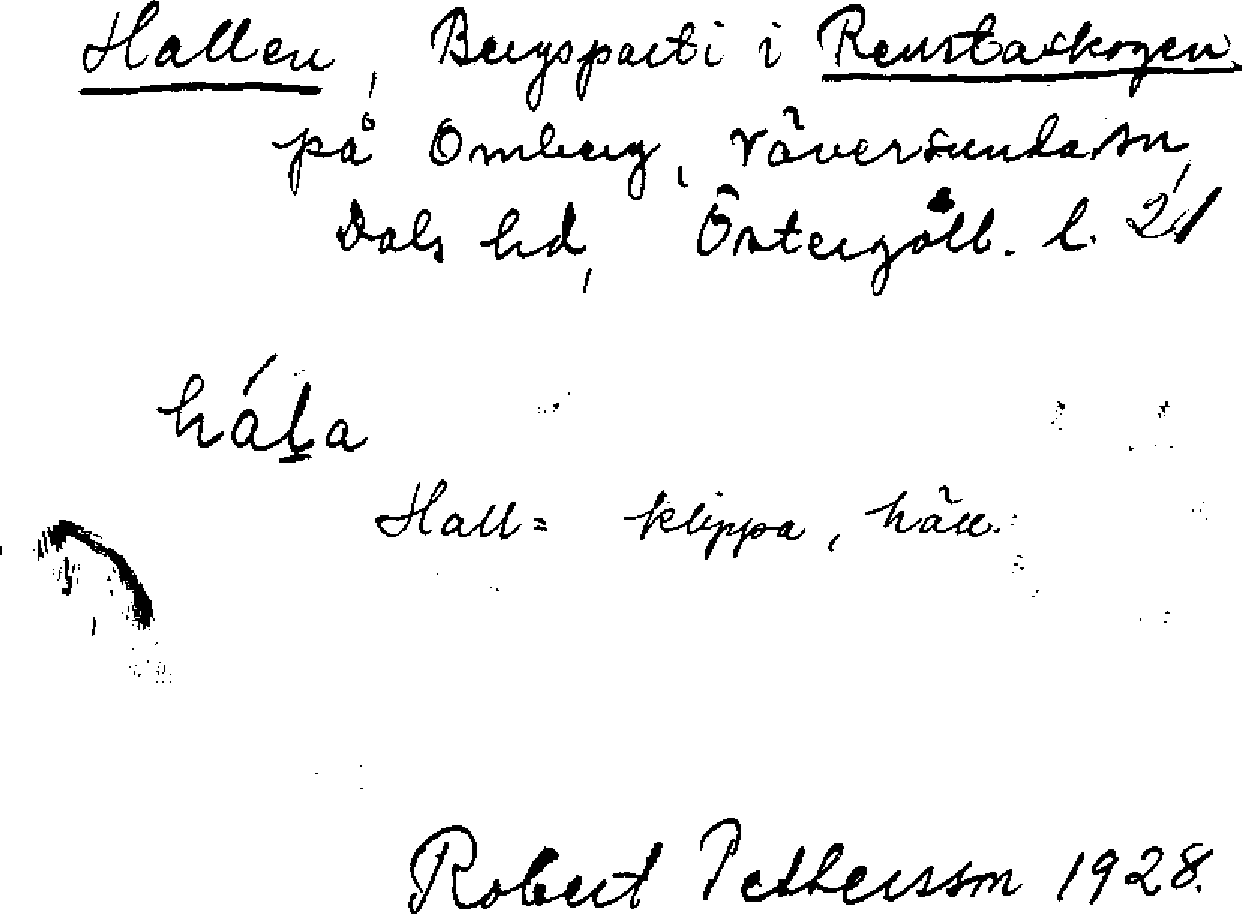 Hallen, Bergsparti i Renstaskogen
på Omberg, Väversunda sn,
Dals hd, Östergötl. l. 21
háḻa
Hall = klippa, häll.
Robert Pettersson 1928.